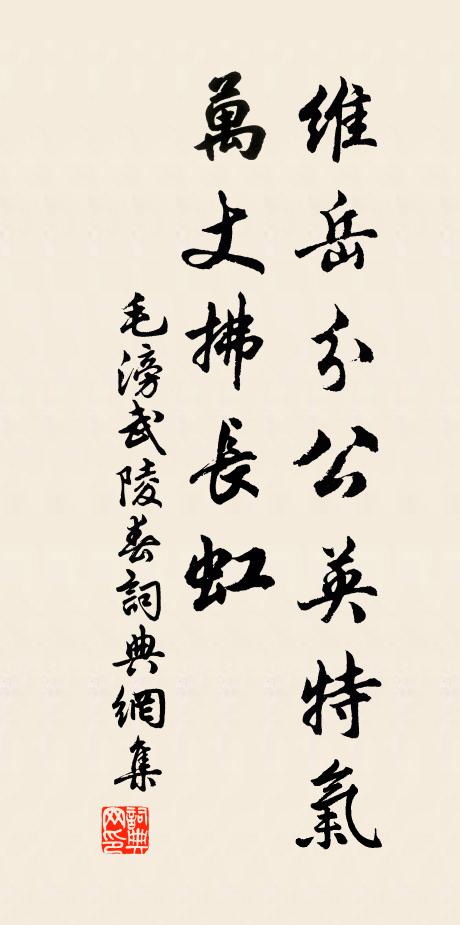 維岳分公英特氣
萬丈拂長虹
毛滂武陵春詞典網集
詞典网印